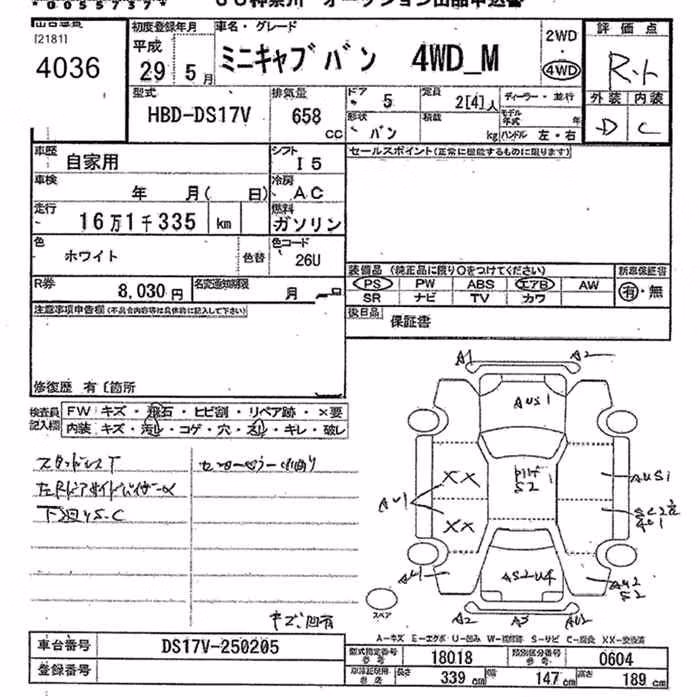 4036
[2181]
初度登録年月
平成
29年5月
車名・グレード
ミニキャブバン 4WD_M
2WD
・
4WD
評価点
外装 内装
D C
型式
HBD-DS17V
排気量
658
CC
ドア
5
定員
2[4]人
ディーラー・並行
形状
バン
積載
kg
モデル年式
年
ハンドル 左・右
車歴
自家用
シフト
I5
セールスポイント(正常に機能するものに限ります)
車検
年 月( 日)
冷房
AC
走行
16万1千335 km
燃料
ガソリン
色
ホワイト
色替
色コード
26U
装備品 (純正品に限り○をつけてください)
新車保証書
PS PW ABS エアB AW
有・無
SR ナビ TV カワ
R券
8,030円
名変通知期限
月 日
後日品
保証書
注意事項申告欄(不具合内容等は具体的に記入して下さい)
修復歴 有〔箇所
検査員記入欄
FW キズ・飛石・ヒビ割・リペア跡・×要
内装 キズ・汚レ・コゲ・穴・スレ・キレ・破レ
スタッドレスT
下廻りS.C
A1 A2
AUS1
XX
XX
AU1
S2
AUS1
AU1
AS2U4
AU2
S2
A2 A3 AU2
スペア
A-キズ E-エクボ U-凹ミ W-補修跡 S-サビ C-腐食 XX-交換済
車台番号
DS17V-250205
登録番号
型式指定番号
参考
18018
類別区分番号
参考
0604
長さ
339 cm
幅
147 cm
高さ
189 cm